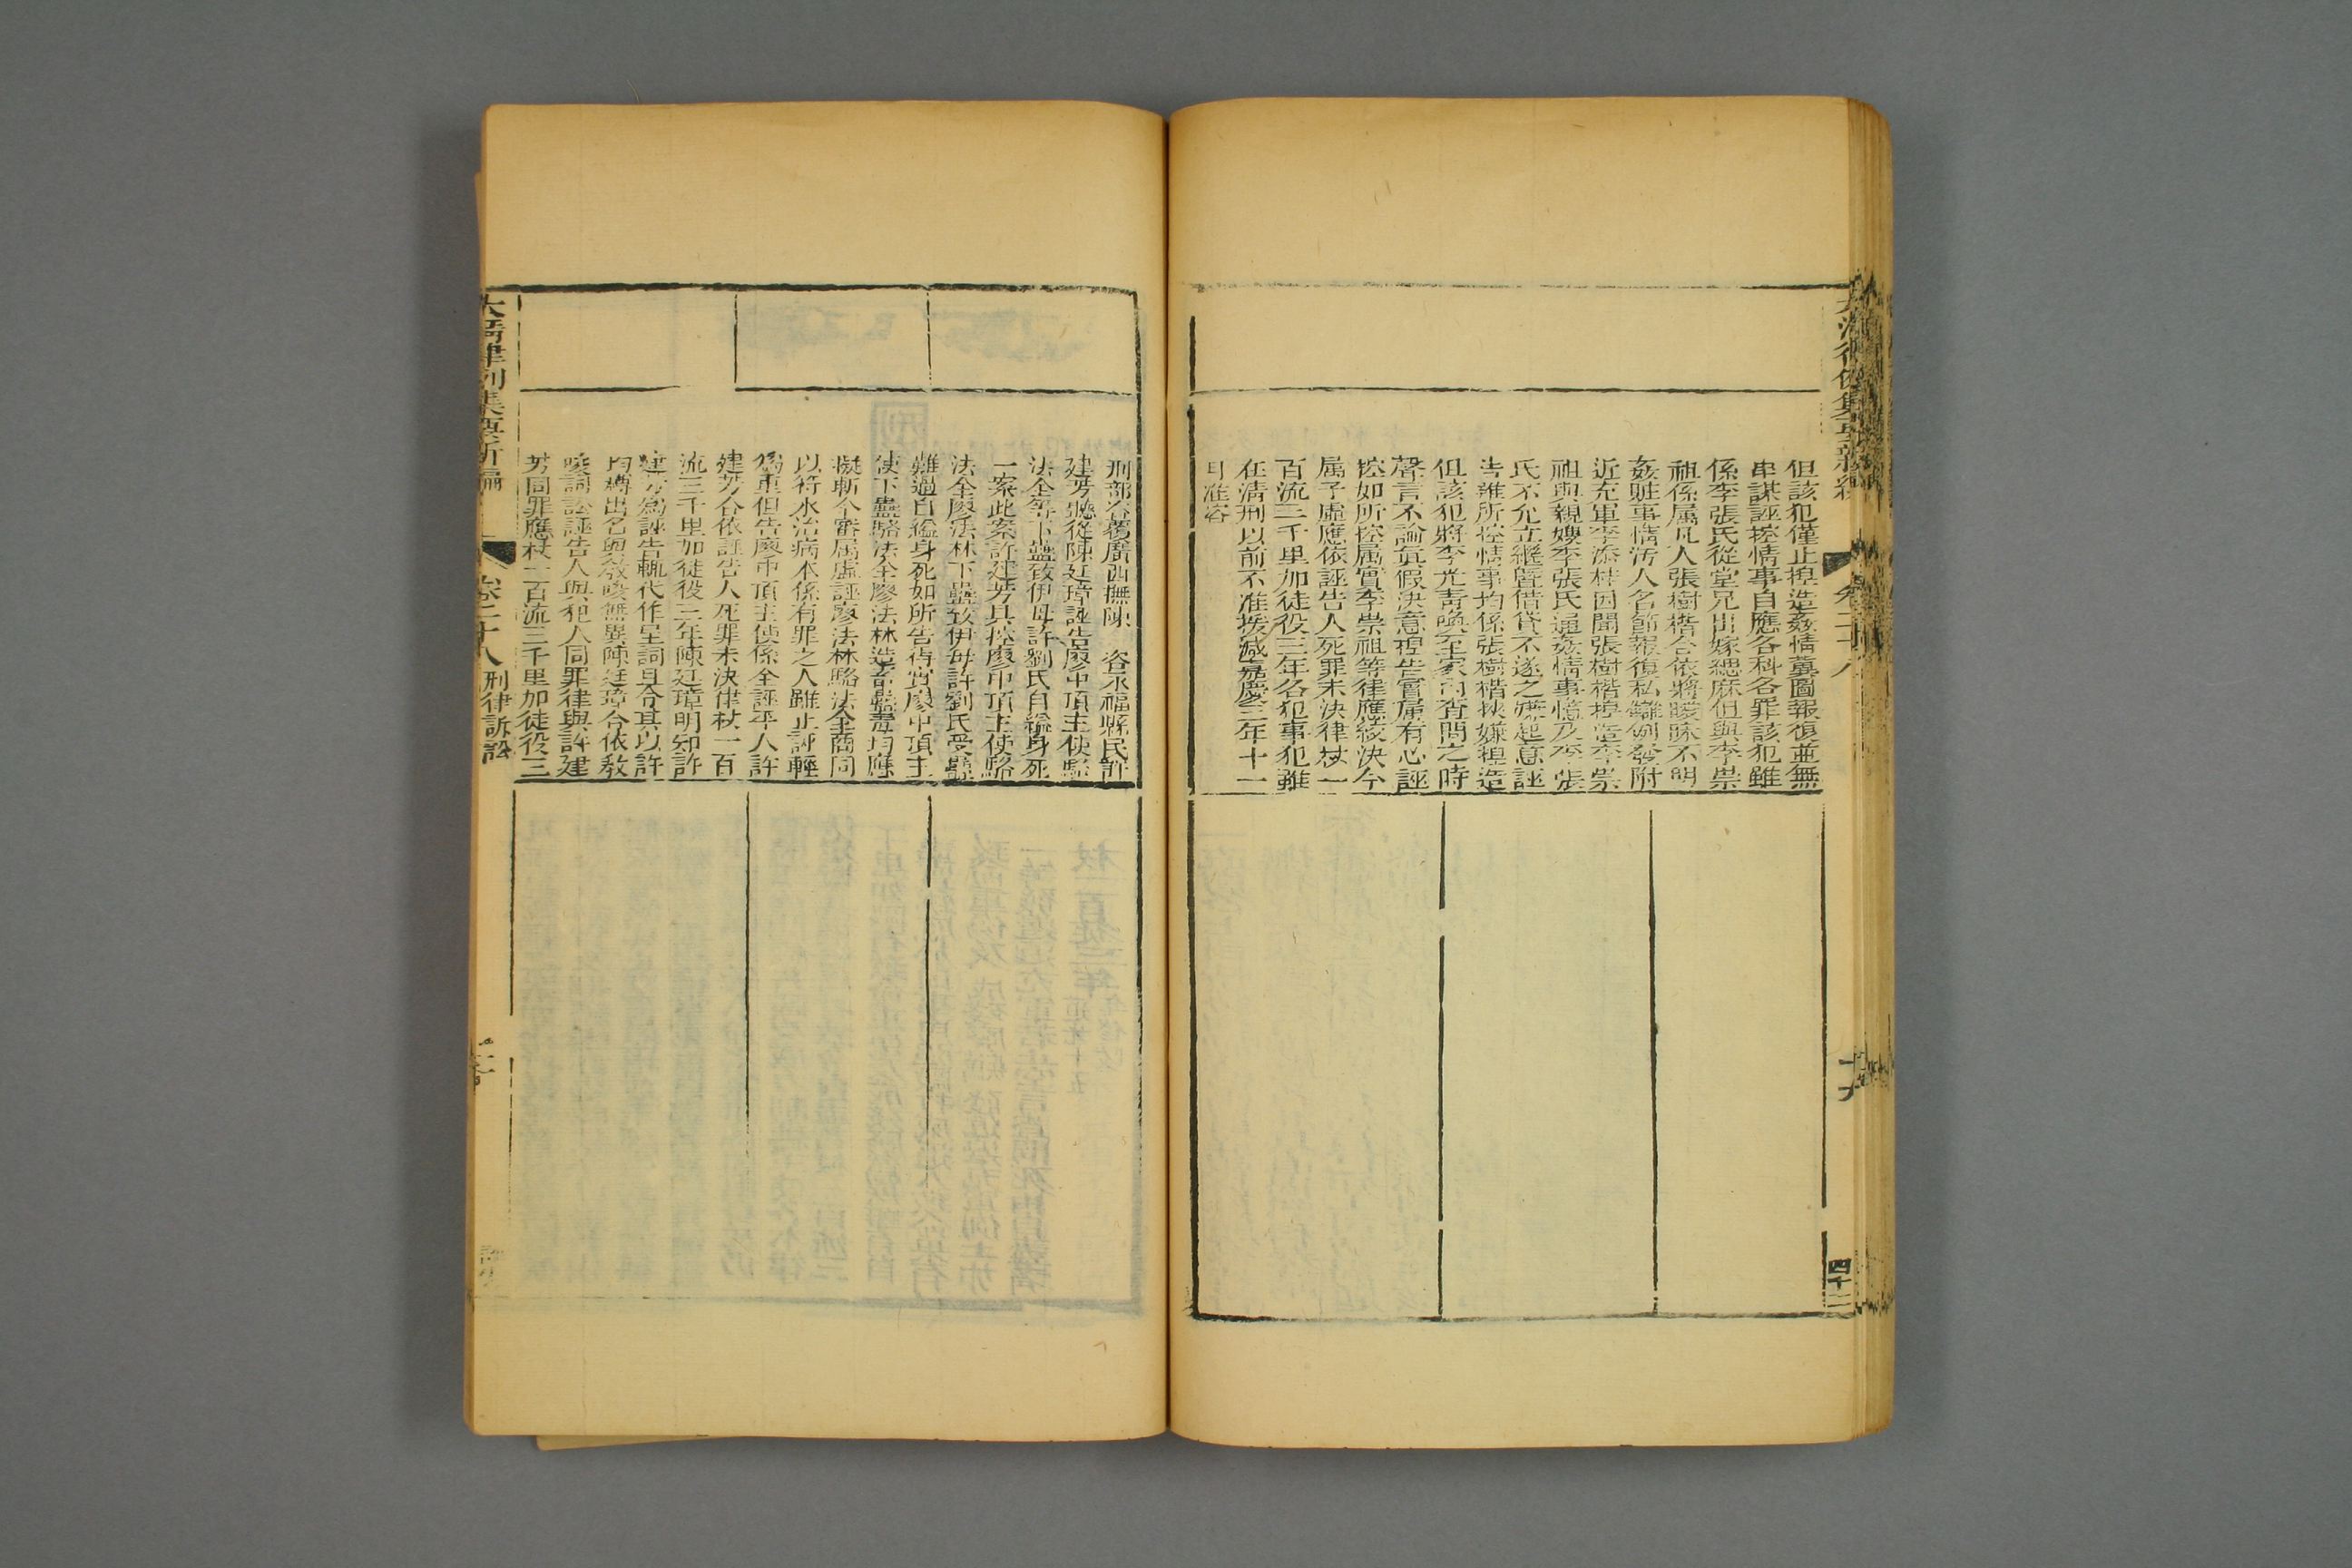 大清律例集要新編
卷二十八
十六
四十二
但該犯僅止揑造姦情冀圖報復並無
串謀誣控情事自應各科各罪該犯雖
係李張氏從堂兄出嫁緦麻但與李崇
祖係屬凡人張樹楷合依將曖昧不明
姦贓事情汚人名節報復私讎例發附
近充軍李添桂因聞張樹楷揑造李崇
祖與親嫂李張氏通姦情事憶及李張
氏不允立繼曁借貸不遂之嫌起意誣
告雖所控情事均係張樹楷挾嫌揑造
但該犯將李光青喚至家內查問之時
聲言不論眞假決意控告實屬有心誣
控如所控属實李崇祖等律應絞決今
属子虛應依誣告人死罪未決律杖一
百流三千里加徒役三年各犯事犯雖
在清刑以前不准援減嘉慶三年十二
月准咨
刑部咨覆廣西撫陳 咨永福縣民許
建芳聽從陳廷璋誣告廖中頂主使駱
法全等下蠱致伊母許劉氏自縊身死
一案此案許建芳具控廖中頂主使駱
法全廖法林下蠱致伊母許劉氏受蠱
難過自縊身死如所告得實廖中頂主
使下蠱駱法全廖法林造畜蠱毒均應
擬斬今審属虛誣廖法林駱法全商同
以符水治病本係有罪之人雖止誣輕
爲重但告廖中頂主使係全誣平人許
建芳合依誣告人死罪未決律杖一百
流三千里加徒役三年陳廷璋明知許
建芳爲誣告輒代作呈詞且令其以許
均樽出名與敎唆無異陳廷璋合依敎
唆詞訟誣告人與犯人同罪律與許建
芳同罪應杖一百流三千里加徒役三
大清律例集要新編
卷二十八 刑律訴訟